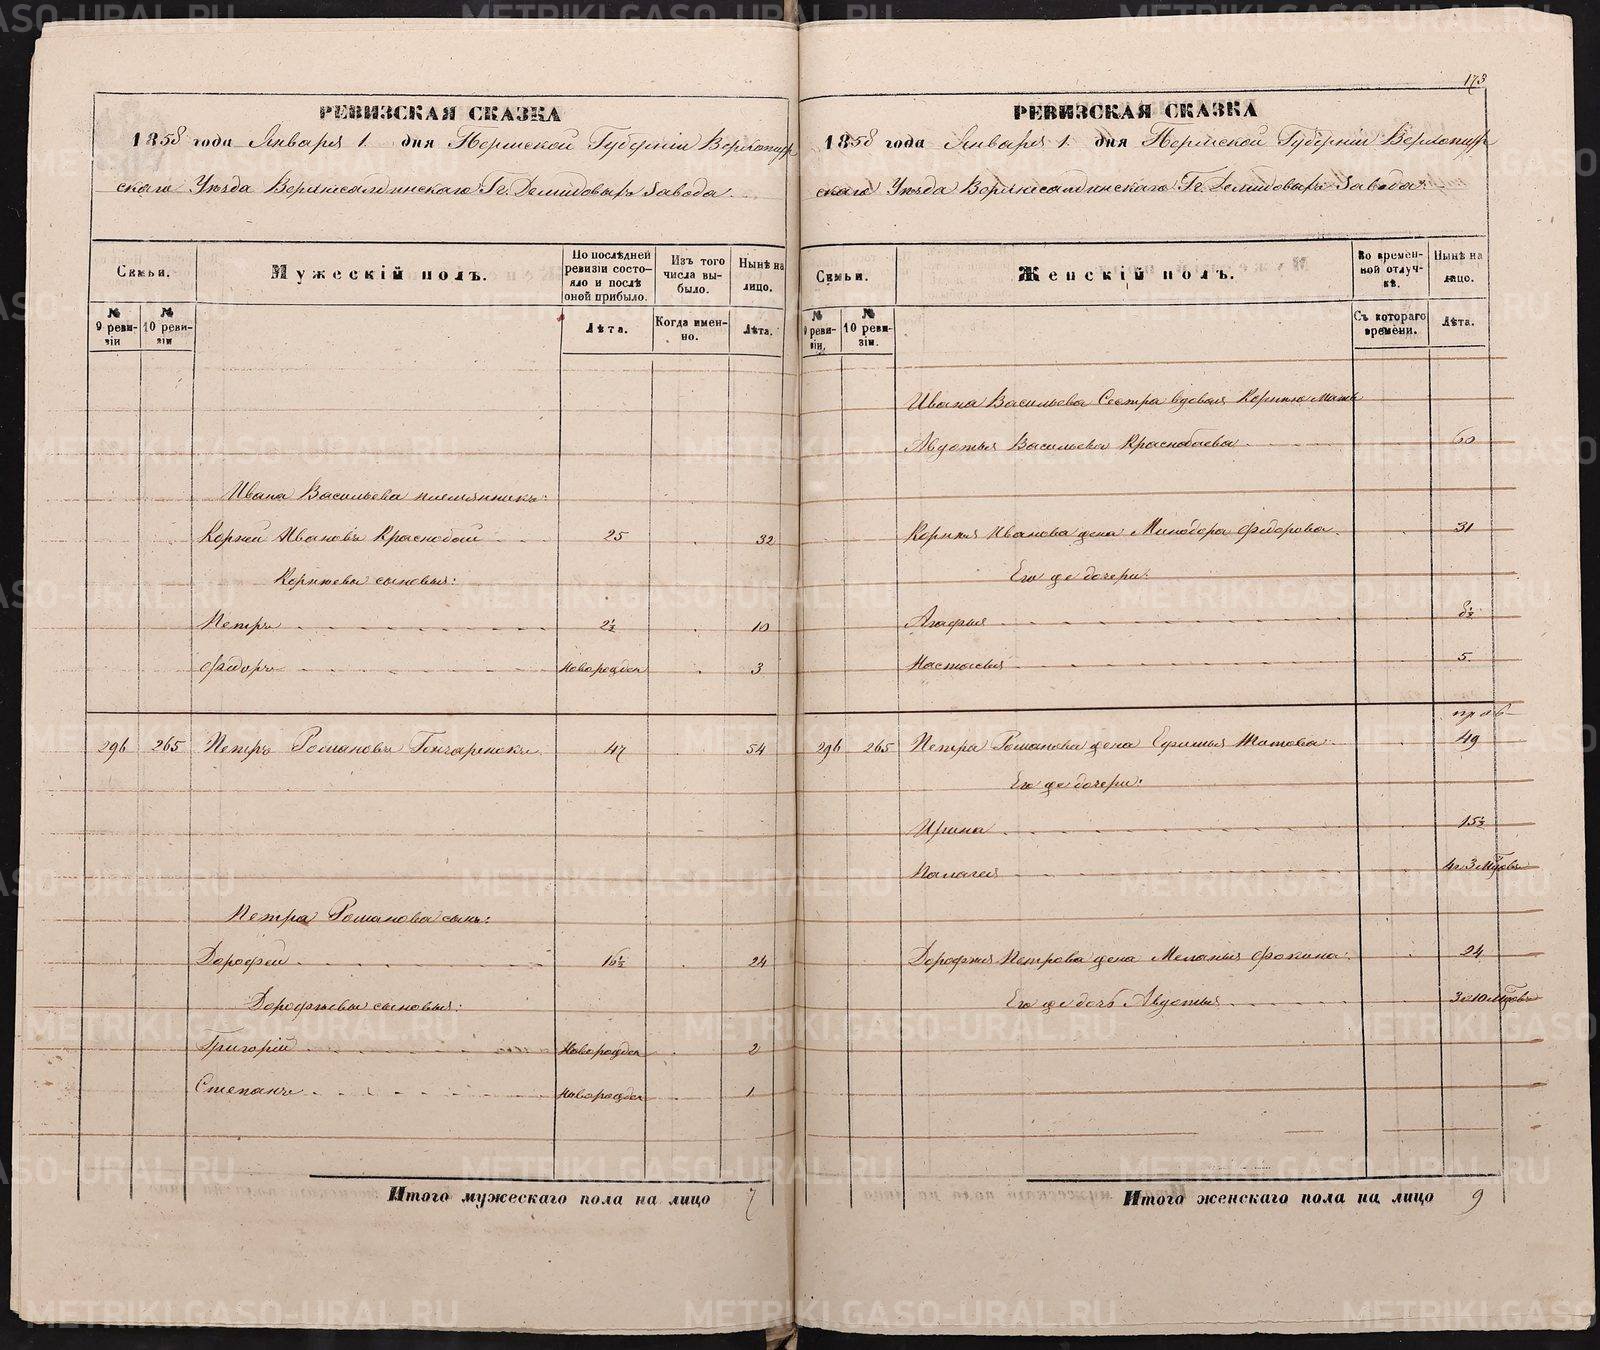 РЕВИЗСКАЯ СКАЗКА
1858 года Января 1 дня Пермской Губерніи Верхотур
скаго Уѣзда Верхнесалдинскаго Гг. Демидовыхъ Завода
Семьи.
№ 9 ревизіи
№ 10 ревизіи
Мужескій полъ.
По послѣдней ревизіи состояло и послѣ оной прибыло.
Лѣта.
Изъ того числа выбыло.
Когда именно.
Нынѣ на лицо.
Лѣта.
Ивана Васильева племянникъ:
Корнил Ивановъ Краснобай 25 32
Корнѣевы сыновья:
Петръ 2½ 10
Федоръ Новорожден 3
296 265 Петръ Романовъ Гончаренокъ 47 54
Петра Романова сынъ:
Дорофеи 16½ 24
Дорофѣевы сыновья:
Григорій Новорожден 2
Степанъ Новорожден 1
Итого мужескаго пола на лицо 7
173
РЕВИЗСКАЯ СКАЗКА
1858 года Января 1 дня Пермской Губерніи Верхотур
скаго Уѣзда Верхнесалдинскаго Гг. Демидовыхъ Завода
Семьи.
№ 9 ревизіи.
№ 10 ревизіи.
Женскій полъ.
Во временной отлучкѣ.
Съ котораго времени.
Нынѣ на лицо.
Лѣта.
Ивана Васильева Сестра вдовая Корнилю Мать
Авдотья Васильева Краснобаева 60
Корнила Иванова жена Минодора Федорова 31
Его же дочери:
Агафья 8½
Настасья 5.
296 265 Петра Романова жена Ефимья Титова 49
Его же дочери:
Ирина 15½
Палагея 4 и 3 мѣсяцовъ
Дорофея Петрова жена Меланья Фокина 24
Его же дочь Авдотья 3 и 10 мѣсяцовъ
Итого женскаго пола на лицо 9
METRIKI.GASO-URAL.RU